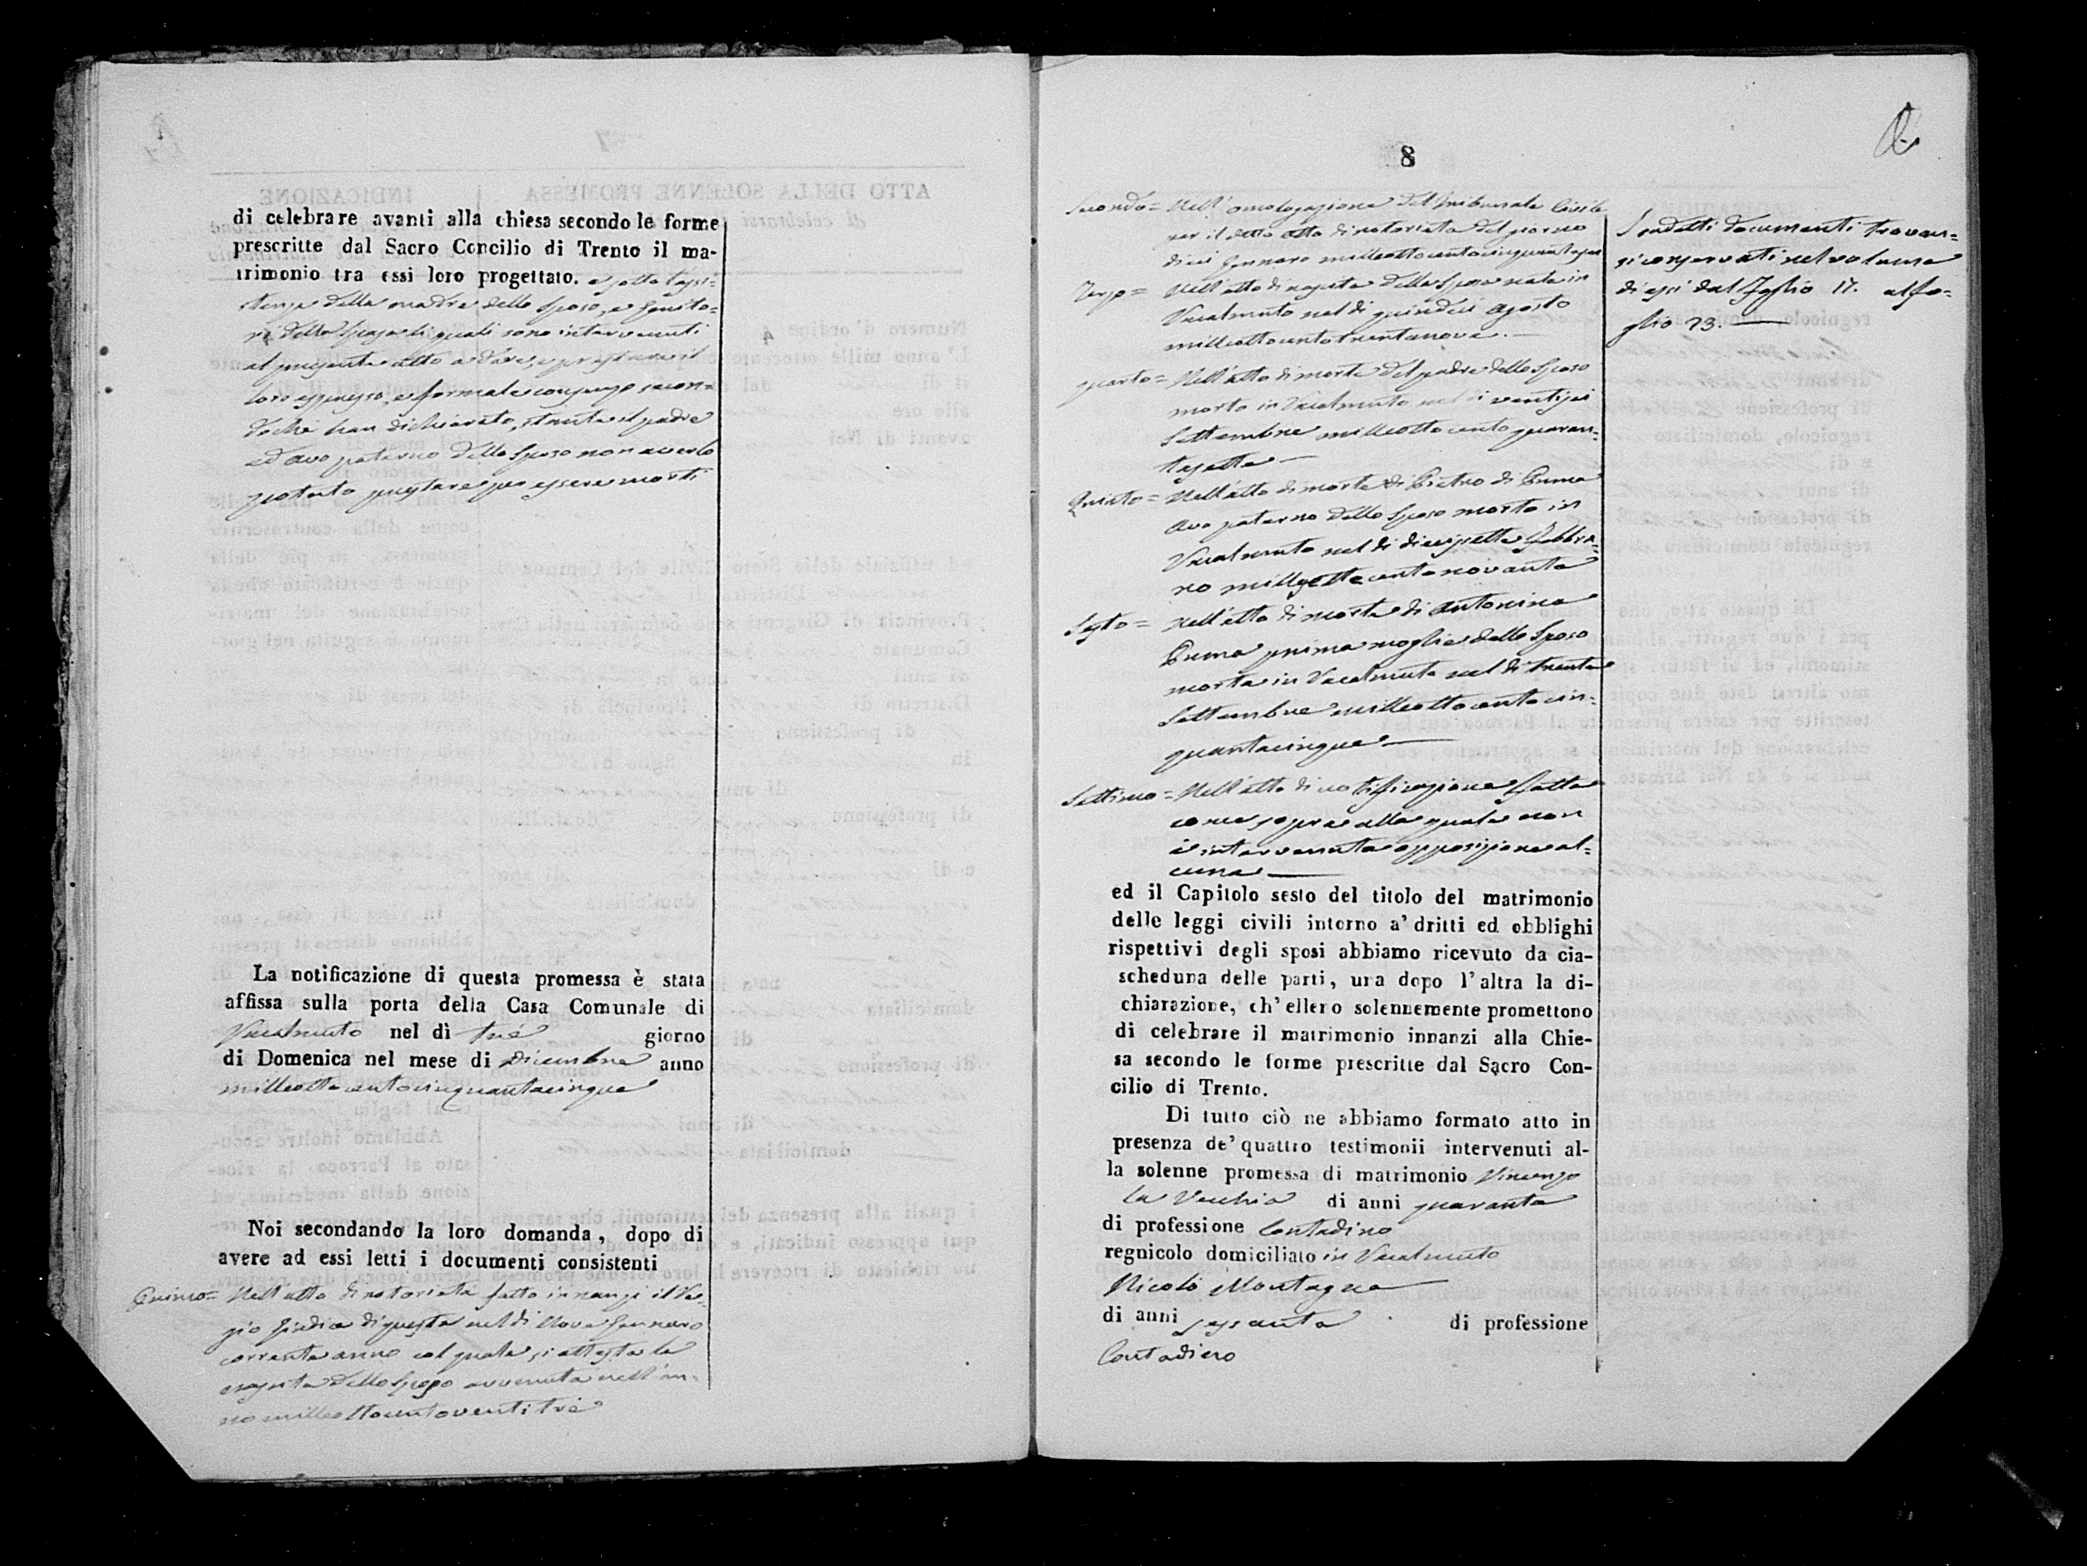 di celebrare avanti alla chiesa secondo le forme
prescritte dal Sacro Concilio di Trento il ma-
trimonio tra essi loro progettato. e sotto l'assi-
stenza della madre dello Sposo, e Genito-
ri della Sposa li quali sono intervenuti
al presente atto a dare, e prestare il
loro espresso, e formale consenso, secon-
docchè han dichiarato, stante il padre
ed avo paterno dello Sposo non averlo
potuto prestare per essere morti
La notificazione di questa promessa è stata
affissa sulla porta della Casa Comunale di
Racalmuto nel dì tre giorno
di Domenica nel mese di Dicembre anno
milleottocentocinquantacinque
Noi secondando la loro domanda, dopo di
avere ad essi letti i documenti consistenti
Primo = Nell'atto di notorietà fatto innanzi il Re-
gio Giudice di questa nel dì nove Gennaro
corrente anno col quale si attesta la
nascita dello Sposo avvenuta nell'an-
no milleottocentoventitre
8
Secondo = Nell'omologazione del Tribunale Civile
per il detto atto di notorietà del giorno
dieci Gennaro milleottocentocinquantasei
Terzo = Nell'atto di nascita della Sposa nata in
Racalmuto nel dì quindici Agosto
milleottocentotrentanove.
Quarto = Nell'atto di morte del padre dello Sposo
morto in Racalmuto nel dì ventisei
Settembre milleottocentoquaran-
tasette
Quinto = Nell'atto di morte di Pietro di Puma
Avo paterno dello Sposo morto in
Racalmuto nel dì diecisette Febbra-
ro millesettecentonovanta
Sesto = Nell'atto di morte di Antonina
Puma prima moglie dello Sposo
morta in Racalmuto nel dì trenta
Settembre milleottocentocin-
quantacinque
Settimo = Nell'atto di notificazione fatta
come sopra alla quale non
è intervenuta opposizione al-
cuna
ed il Capitolo sesto del titolo del matrimonio
delle leggi civili intorno a' dritti ed obblighi
rispettivi degli sposi abbiamo ricevuto da cia-
scheduna delle parti, una dopo l'altra la di-
chiarazione, ch'ellero solennemente promettono
di celebrare il matrimonio innanzi alla Chie-
sa secondo le forme prescritte dal Sacro Con-
cilio di Trento.
Di tutto ciò ne abbiamo formato atto in
presenza de' quattro testimonii intervenuti al-
la solenne promessa di matrimonio Vincenzo
La Vecchia di anni quaranta
di professione Contadino
regnicolo domiciliato in Racalmuto
Nicolò Montagna
di anni sessanta di professione
Contadino
I sudetti documenti trovan-
si conservati nel volume
di essi dal Foglio 17. al fo-
glio 23.